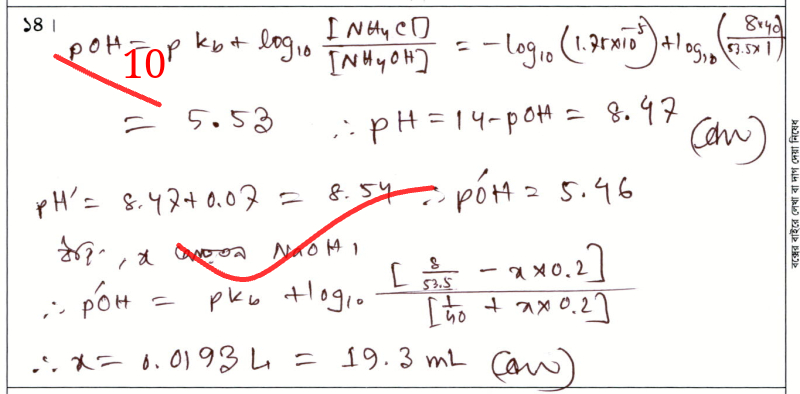 ১৪।
pOH = pkb + log10 [NH4Cl]/[NH4OH] = -log10 (1.75x10^-5) + log10 (8x40/53.5x1)
10
= 5.53 ∴ pH = 14-pOH = 8.47 (Ans)
pH' = 8.47+0.07 = 8.54 ∴ pOH' = 5.46
ধরি, x NaOH।
∴ pOH' = pkb + log10 [8/53.5 - x×0.2]/[1/40 + x×0.2]
∴ x = 0.0193 L = 19.3 mL (Ans)
বক্সের বাইরে লেখা বা দাগ দেয়া নিষেধ